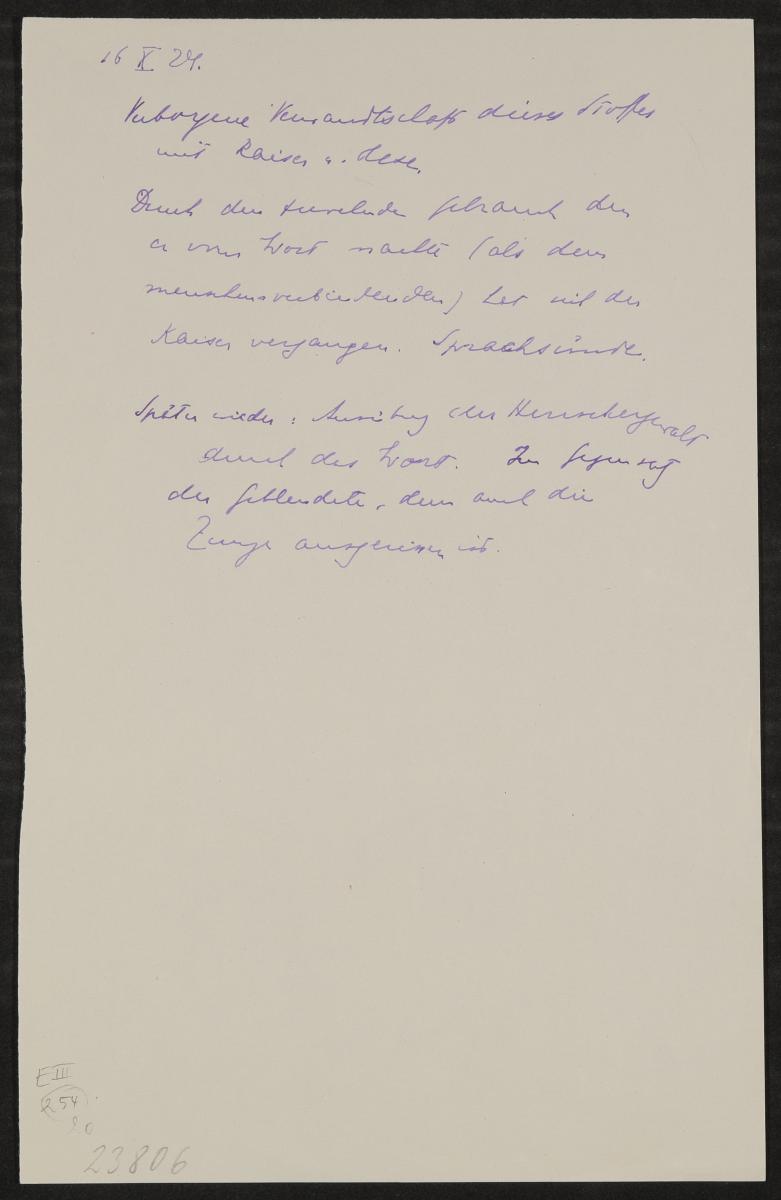 16 X 24.
Verborgene Verwandtschaft dieses Stoffes
mit Kaiser u. Hexe.
Durch den Gebrauch den
er vom Wort machte (als dem
menschenverbindenden) hat sich der
Kaiser vergangen. Sprachsünde.
Später wieder: Ausübung der Herrschergewalt
durch das Wort. Im Gegensatz
der Geblendete, dem auch die
Zunge ausgerissen ist.
E III
254
20
23806